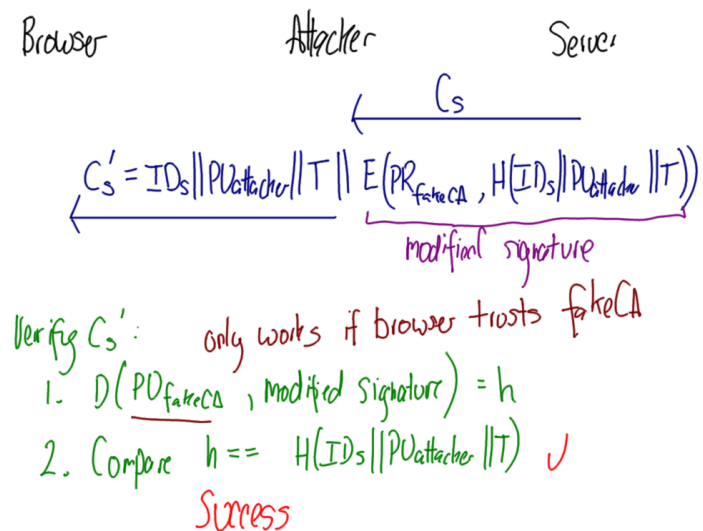 Browser Attacker Server
Cs
Cs' = IDs||PUattacher||T|| E(PRfakeCA, H(IDs||PUattacher||T))
modified signature
Verify Cs': only works if browser trusts fakeCA
1. D(PUfakeCA, modified signature) = h
2. Compare h == H(IDs||PUattacher||T) ✓
Success